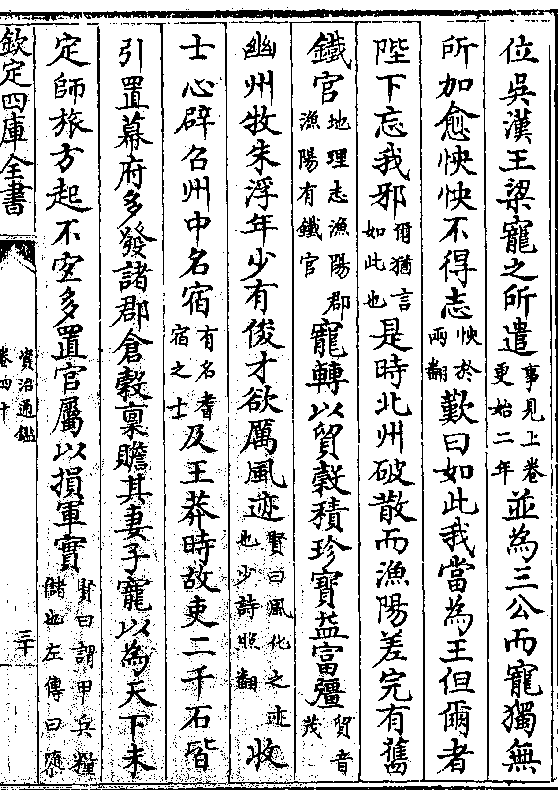 位吳漢王梁寵之所遣事見上卷更始二年並為三公而寵獨無
所加愈怏怏不得志怏於兩翻歎曰如此我當為王但爾者
陛下忘我邪爾猶言如此也是時北州破散而漁陽差完有舊
鐵官地理志漁陽郡漁陽有鐵官寵轉以貿榖積珍寶益富彊貿音茂
幽州牧朱浮年少有俊才欲厲風迹賢曰風化之迹也少詩照翻收
士心辟召州中名宿有名耆宿之士及王莽時故吏二千石皆
引置幕府多發諸郡倉榖稟贍其妻子寵以為天下未
定師旅方起不宜多置官屬以損軍實賢曰謂甲兵糧儲也左傳曰墮
欽定四庫全書
資治通鑑
卷四十
三十